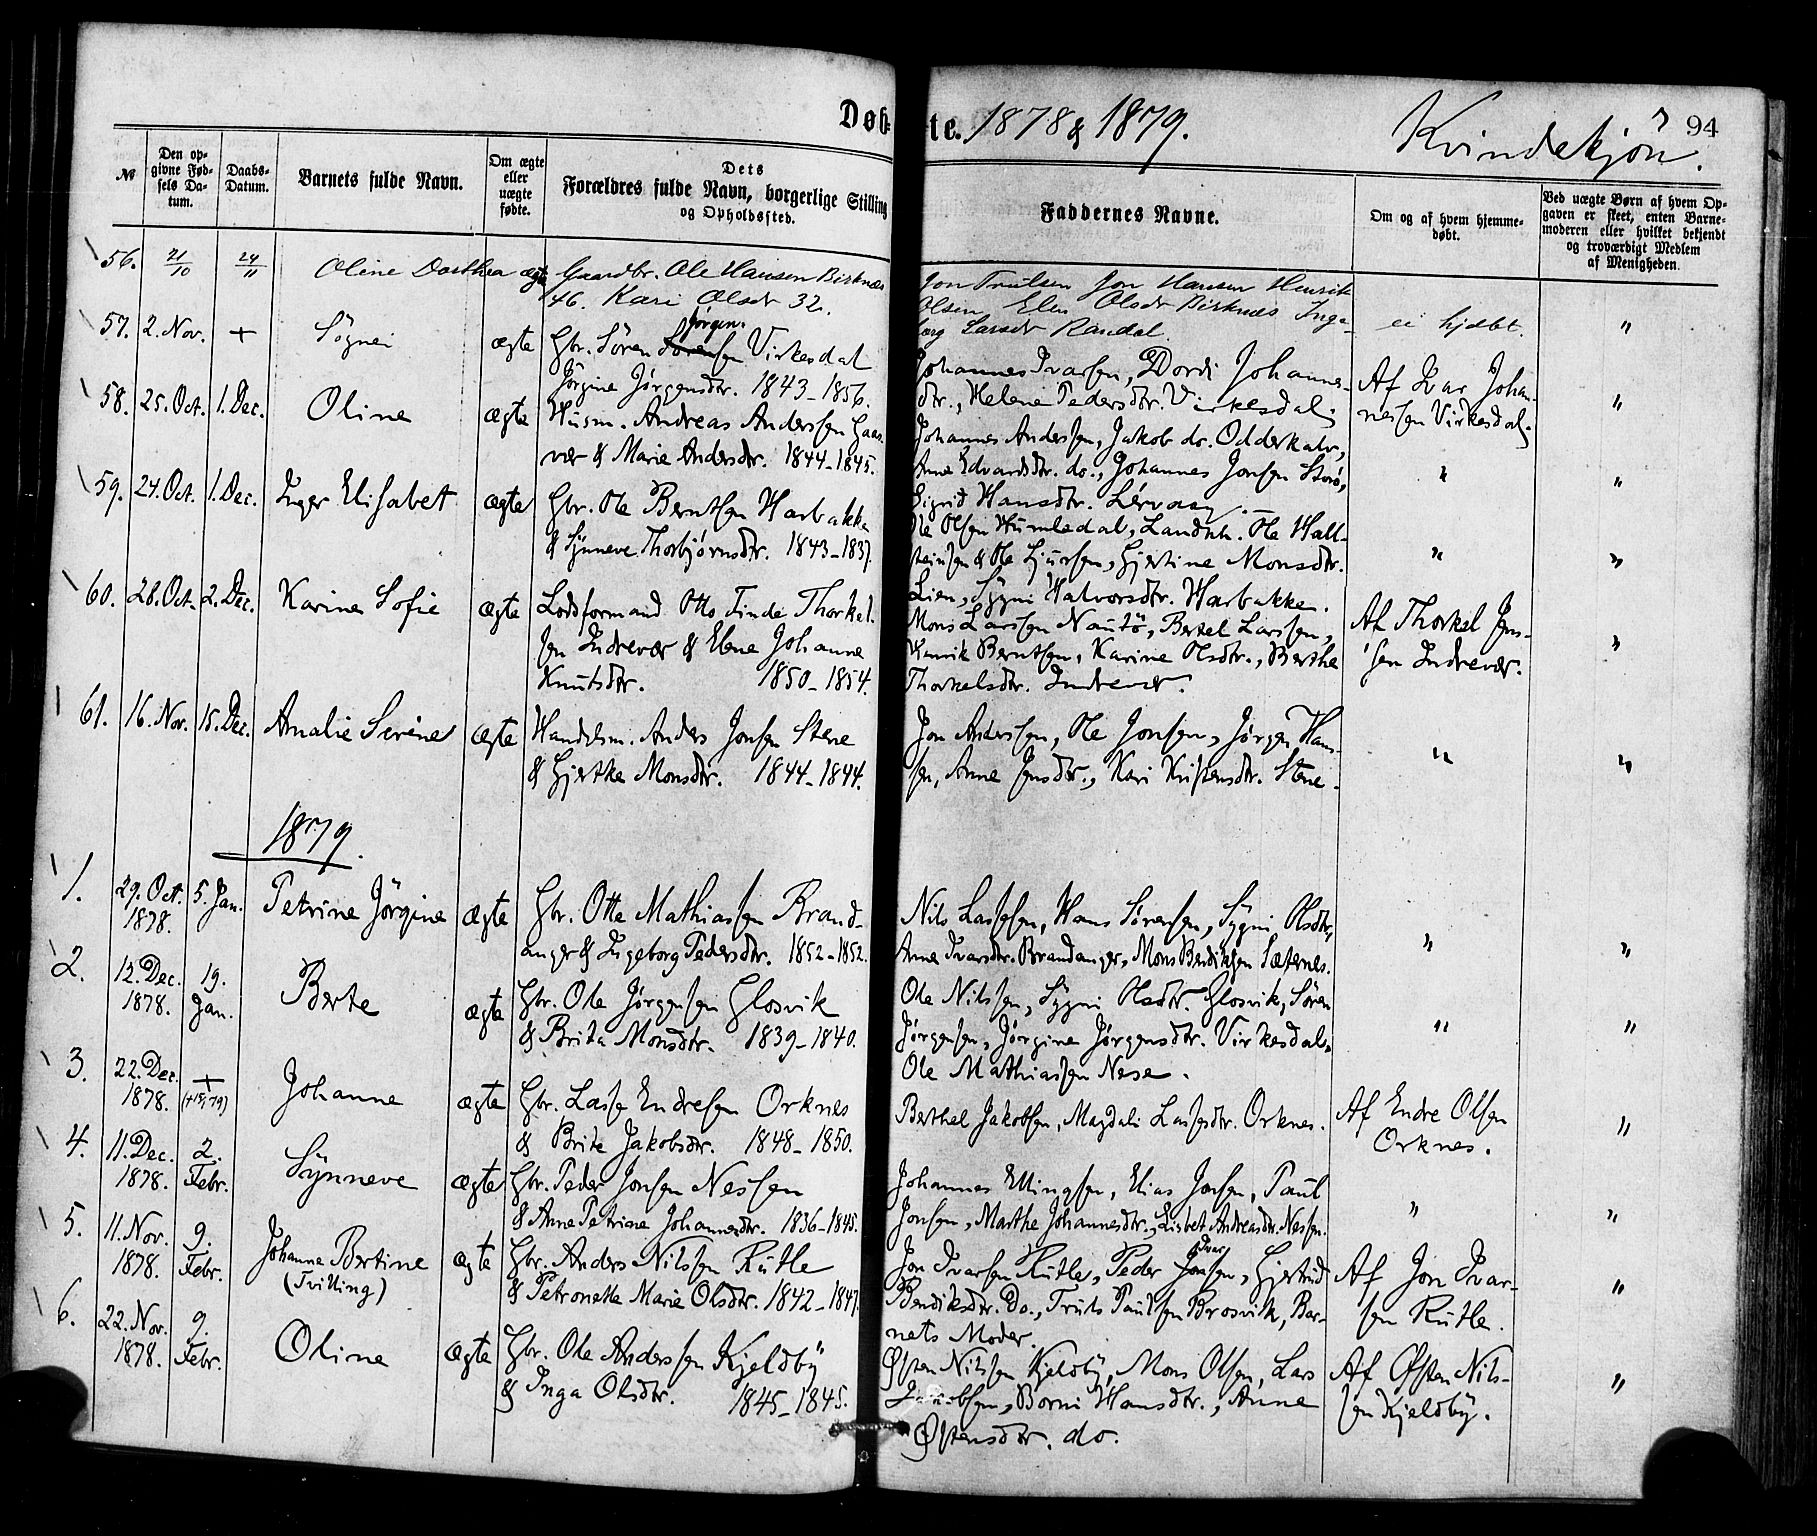 Døbte. 1878 & 1879. Kvindekjøn. 94
№
Den opgivne Fødsels Datum.
Daabs-Datum.
Barnets fulde Navn.
Om ægte eller uægte fødte.
Dets Forældres fulde Navn, borgerlige Stilling og Opholdssted.
Faddernes Navne.
Om og af hvem hjemmedøbt.
Ved uægte Børn af hvem Opgaven er skeet, enten Barnemoderen eller hvilket bekjendt og troværdigt Medlem af Menigheden.
56. 21/10 24/11 Oline Dorthea ægte Gaardbr. Ole Hansen Birknæs
46. Kari Olsdr 32.
Jon Trulsen Jon Hansen Henrik
Olsen Elen Olsdr Birknæs Inge-
borg Larsdr Randal. ei hjdbt. "
57. 2. Nov. + Sögnei ægte Gbr. Sören Sörensen Jörgen Virkesdal
Jörgine Jörgensdtr. 1843-1856.
Johannes Ivarsen, Dordi Johannes-
dtr., Helene Pedersdtr. Virkesdal.
Af Ivar Johan-
nessen Virkesdal. "
58. 25. Oct. 1. Dec. Oline ægte Husm. Andreas Anderssen Gaas-
vær & Marie Andersdtr. 1844-1845.
Johannes Anderssen, Jakob do. Odderkalv,
Anne Edvardsdtr. do., Johannes Jonsen Storö,
Sigrid Hansdtr. Lervaag. " "
59. 24. Oct. 1. Dec. Inger Elisabet ægte Gbr. Ole Berntsen Harbakke
& Synneve Thorbjørnsdtr. 1843-1837.
Ole Olsen Humledal, Landh. Ole Hall-
steinsen & Ole Ljursen, Gjertine Monsdtr.
Lien, Sygni Halvorsdtr. Harbakke. " "
60. 28. Oct. 2. Dec. Karine Sofie ægte Lodsformand Otto Finde Thorkel-
sen Indrevær & Elene Johanne
Knutsdtr. 1850-1854.
Mons Larssen Nautö, Bertel Larssen,
Henrik Berntsen, Karine Olsdtr., Berthe
Thorkelsdtr. Indrevær.
Af Thorkel Jens-
sen Indrevær. "
61. 16. Nov. 15. Dec. Amalie Serine ægte Handelsm. Anders Jonsen Stene
& Gjertke Monsdtr. 1844-1844.
Jon Anderssen, Ole Jonsen, Jørgen Hans-
sen, Anne Jensdtr., Kari Kristensdtr. Stene. " "
1879.
1. 29. Oct. 1878. 5. Jan. Petrine Jörgine ægte Gbr. Otte Mathiassen Brand-
anger & Ingeborg Pedersdtr. 1852-1852.
Nils Lassesen, Hans Sörensen, Sygni Olsdtr.,
Anne Ivarsdtr. Brandanger, Mons Bendiksen Sæternes. " "
2. 12. Dec. 1878. 19. Jan. Berte ægte Gbr. Ole Jörgensen Glosvik
& Brita Monsdtr. 1839-1840.
Ole Nilssen, Sygni Olsdtr. Glosvik, Sören
Jörgensen, Jörgine Jörgensdtr. Virkesdal,
Ole Mathiassen Nese. " "
3. 22. Dec. 1878. + Johanne ægte Gbr. Lasse Endresen Orknes
& Brite Jakobsdtr. 1848-1850.
Berthel Jakobsen, Magdali Lassesdtr. Orknes.
Af Endre Olsen
Orknes. "
4. 11. Dec. 1878. 2. Febr. Synneve ægte Gbr. Peder Jonsen Nessen
& Anne Petrine Johannesdtr. 1836-1845.
Johannes Ellingsen, Elias Jonsen, Paul
Jonsen, Marthe Johannesdtr., Lisbet Andreasdtr. Nessen. " "
5. 11. Nov. 1878. 9. Febr. Johanne Bertine (Tvilling) ægte Gbr. Anders Nilssen Rutle
& Petronelle Marie Olsdtr. 1842-1847.
Jon Ivarsen Rutle, Peder Jonsen Ivar, Gjertrud
Bendiksdtr. do., Truls Paulsen Brosvik, Bar-
nets Moder.
Af Jon Ivar-
sen Rutle. "
6. 22. Nov. 1878. 9. Febr. Oline ægte Gbr. Ole Anderssen Kjeldby
& Inga Olsdtr. 1845-1845.
Østen Nilssen Kjeldby, Mons Olsen, Lars
Jakobsen, Borni Hansdtr., Anne
Østensdtr. do.
Af Østen Nils-
sen Kjeldby. "